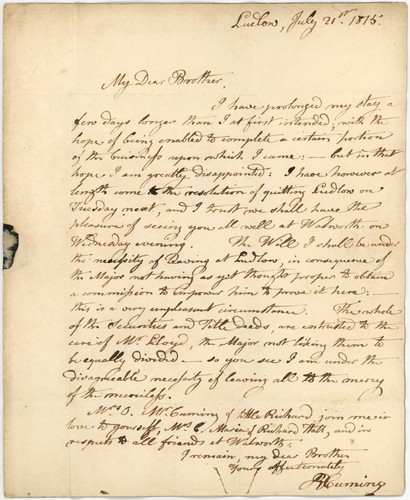 Ludlow, July 21st. 1815.
My Dear Brother,
I have prolonged my stay a
few days longer than I at first intended, with the
hope of being enabled to complete a certain portion
of the business upon which I came: — but in that
hope I am greatly disappointed: I have however at
length come to the resolution of quitting Ludlow on
Tuesday next, and I trust we shall have the
pleasure of seeing you all well at Walworth on
Wednesday evening. The Will I shall be under
the necessity of leaving at Ludlow, in consequence of
the Major not having as yet thought proper to obtain
a commission to empower him to prove it here: —
this is a very unpleasant circumstance. The whole
of the Securities and Title Deeds, are entrusted to the
care of Mr. Lloyd, the Major not liking them to
be equally divided — so you see I am under the
disagreeable necessity of leaving all to the mercy
of the merciless.
Mrs. Cuming & little Richard, join me in
love to yourself, Mrs. C. Maria & Richard Hall, and in
respects to all friends at Walworth.
I remain, my dear Brother
Yours Affectionately
Cuming